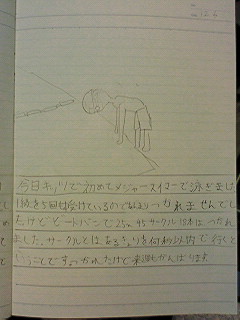 今日キッツで初めてメジャースイマーで泳ぎました
1級を5回は受けているのであまりつかれませんでし
たけどビートバンで25m 45サークル18本はつかれ
ました。サークルとはあるきょりを何秒以内で行くと
いうことです。つかれたけど来週もがんばります